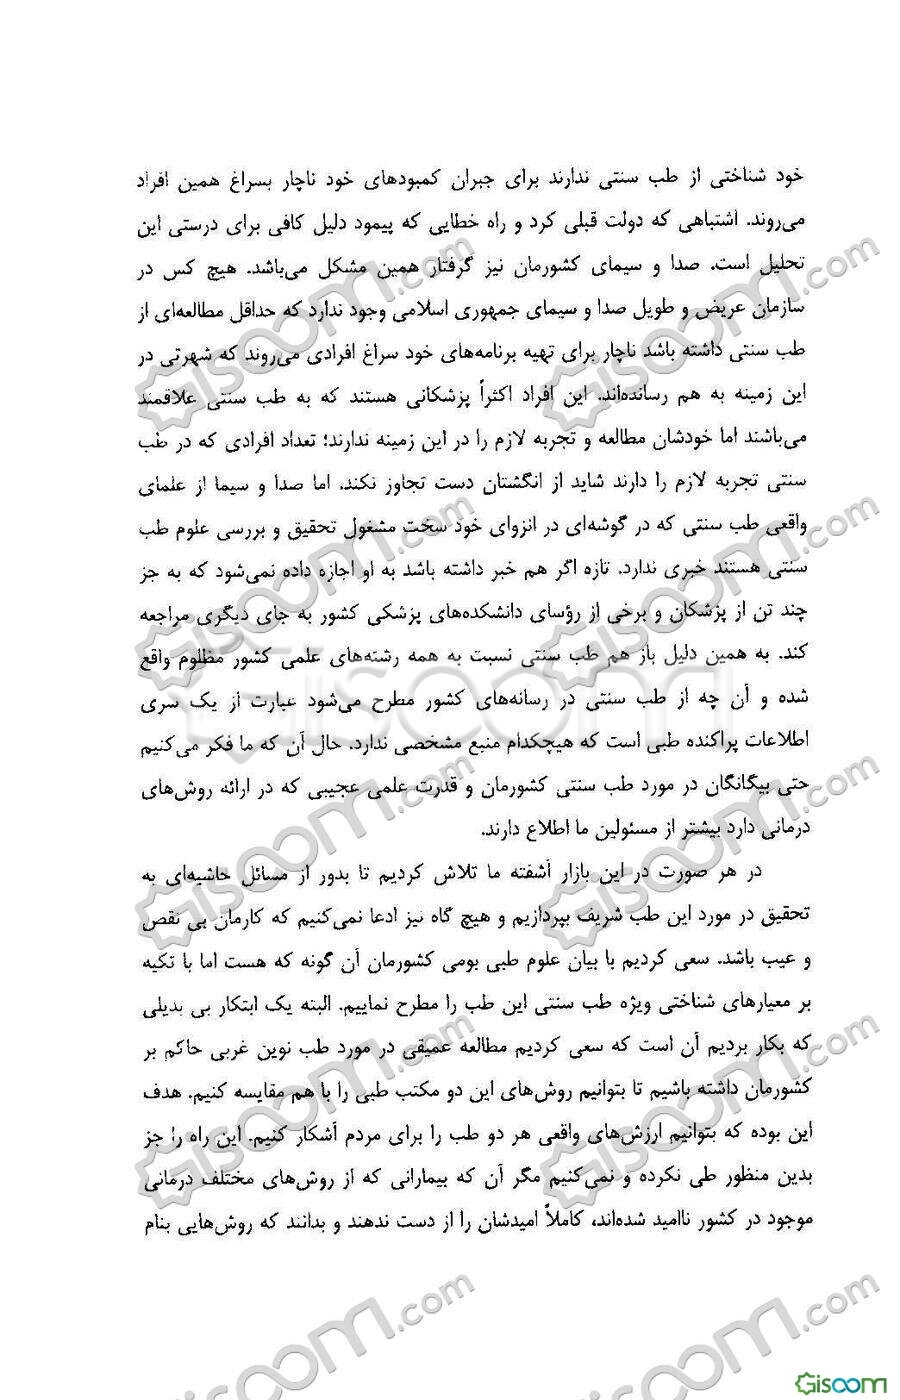 خود شناختی از طب سنتی ندارند برای جبران کمبودهای خود ناچار بسراغ همین افراد
می‌روند. اشتباهی که دولت قبلی کرد و راه خطایی که پیمود دلیل کافی برای درستی این
تحلیل است. صدا و سیمای کشورمان نیز گرفتار همین مشکل می‌باشد. هیچ کس در
سازمان عریض و طویل صدا و سیمای جمهوری اسلامی وجود ندارد که حداقل مطالعه‌ای از
طب سنتی داشته باشد ناچار برای تهیه برنامه‌های خود سراغ افرادی می‌روند که شهرتی در
این زمینه به هم رسانده‌اند. این افراد اکثراً پزشکانی هستند که به طب سنتی علاقمند
می‌باشند اما خودشان مطالعه و تجربه لازم را در این زمینه ندارند؛ تعداد افرادی که در طب
سنتی تجربه لازم را دارند شاید از انگشتان دست تجاوز نکند. اما صدا و سیما از علمای
واقعی طب سنتی که در گوشه‌ای در انزوای خود سخت مشغول تحقیق و بررسی علوم طب
سنتی هستند خبری ندارد. تازه اگر هم خبر داشته باشد به او اجازه داده نمی‌شود که به جز
چند تن از پزشکان و برخی از رؤسای دانشکده‌های پزشکی کشور به جای دیگری مراجعه
کند. به همین دلیل باز هم طب سنتی نسبت به همه رشته‌های علمی کشور مظلوم واقع
شده و آن چه از طب سنتی در رسانه‌های کشور مطرح می‌شود عبارت از یک سری
اطلاعات پراکنده طبی است که هیچکدام منبع مشخصی ندارد. حال آن که ما فکر می‌کنیم
حتی بیگانگان در مورد طب سنتی کشورمان و قدرت علمی عجیبی که در ارائه روش‌های
درمانی دارد بیشتر از مسئولین ما اطلاع دارند.
در هر صورت در این بازار آشفته ما تلاش کردیم تا بدور از مسائل حاشیه‌ای به
تحقیق در مورد این طب شریف بپردازیم و هیچ گاه نیز ادعا نمی‌کنیم که کارمان بی نقص
و عیب باشد. سعی کردیم با بیان علوم طبی بومی کشورمان آن گونه که هست اما با تکیه
بر معیارهای شناختی ویژه طب سنتی این طب را مطرح نماییم. البته یک ابتکار بی بدیلی
که بکار بردیم آن است که سعی کردیم مطالعه عمیقی در مورد طب نوین غربی حاکم بر
کشورمان داشته باشیم تا بتوانیم روش‌های این دو مکتب طبی را با هم مقایسه کنیم. هدف
این بوده که بتوانیم ارزش‌های واقعی هر دو طب را برای مردم آشکار کنیم. این راه را جز
بدین منظور طی نکرده و نمی‌کنیم مگر آن که بیمارانی که از روش‌های مختلف درمانی
موجود در کشور ناامید شده‌اند، کاملاً امیدشان را از دست ندهند و بدانند که روش‌هایی بنام
Gisoom